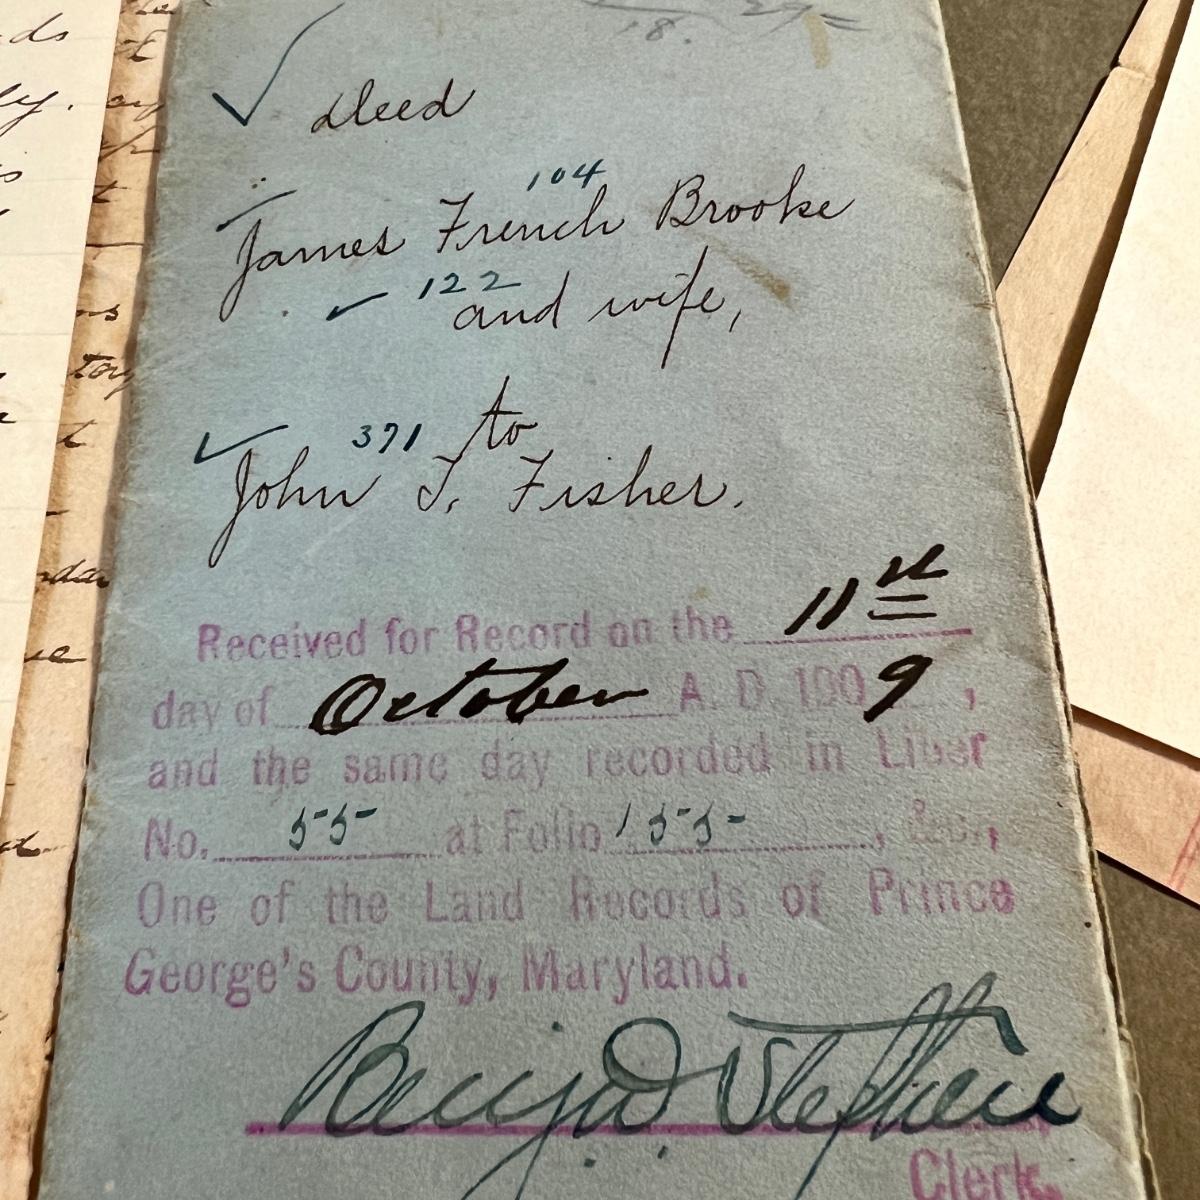 18.
Deed
104
James French Brooke
122
and wife,
to
371
John T. Fisher.
Received for Record on the 11st
day of October A. D. 1909,
and the same day recorded in Liber
No. 55 at Folio 155, &c.,
One of the Land Records of Prince
George's County, Maryland.
Benj D Stephen
Clerk.
ds
ly.
toy
t